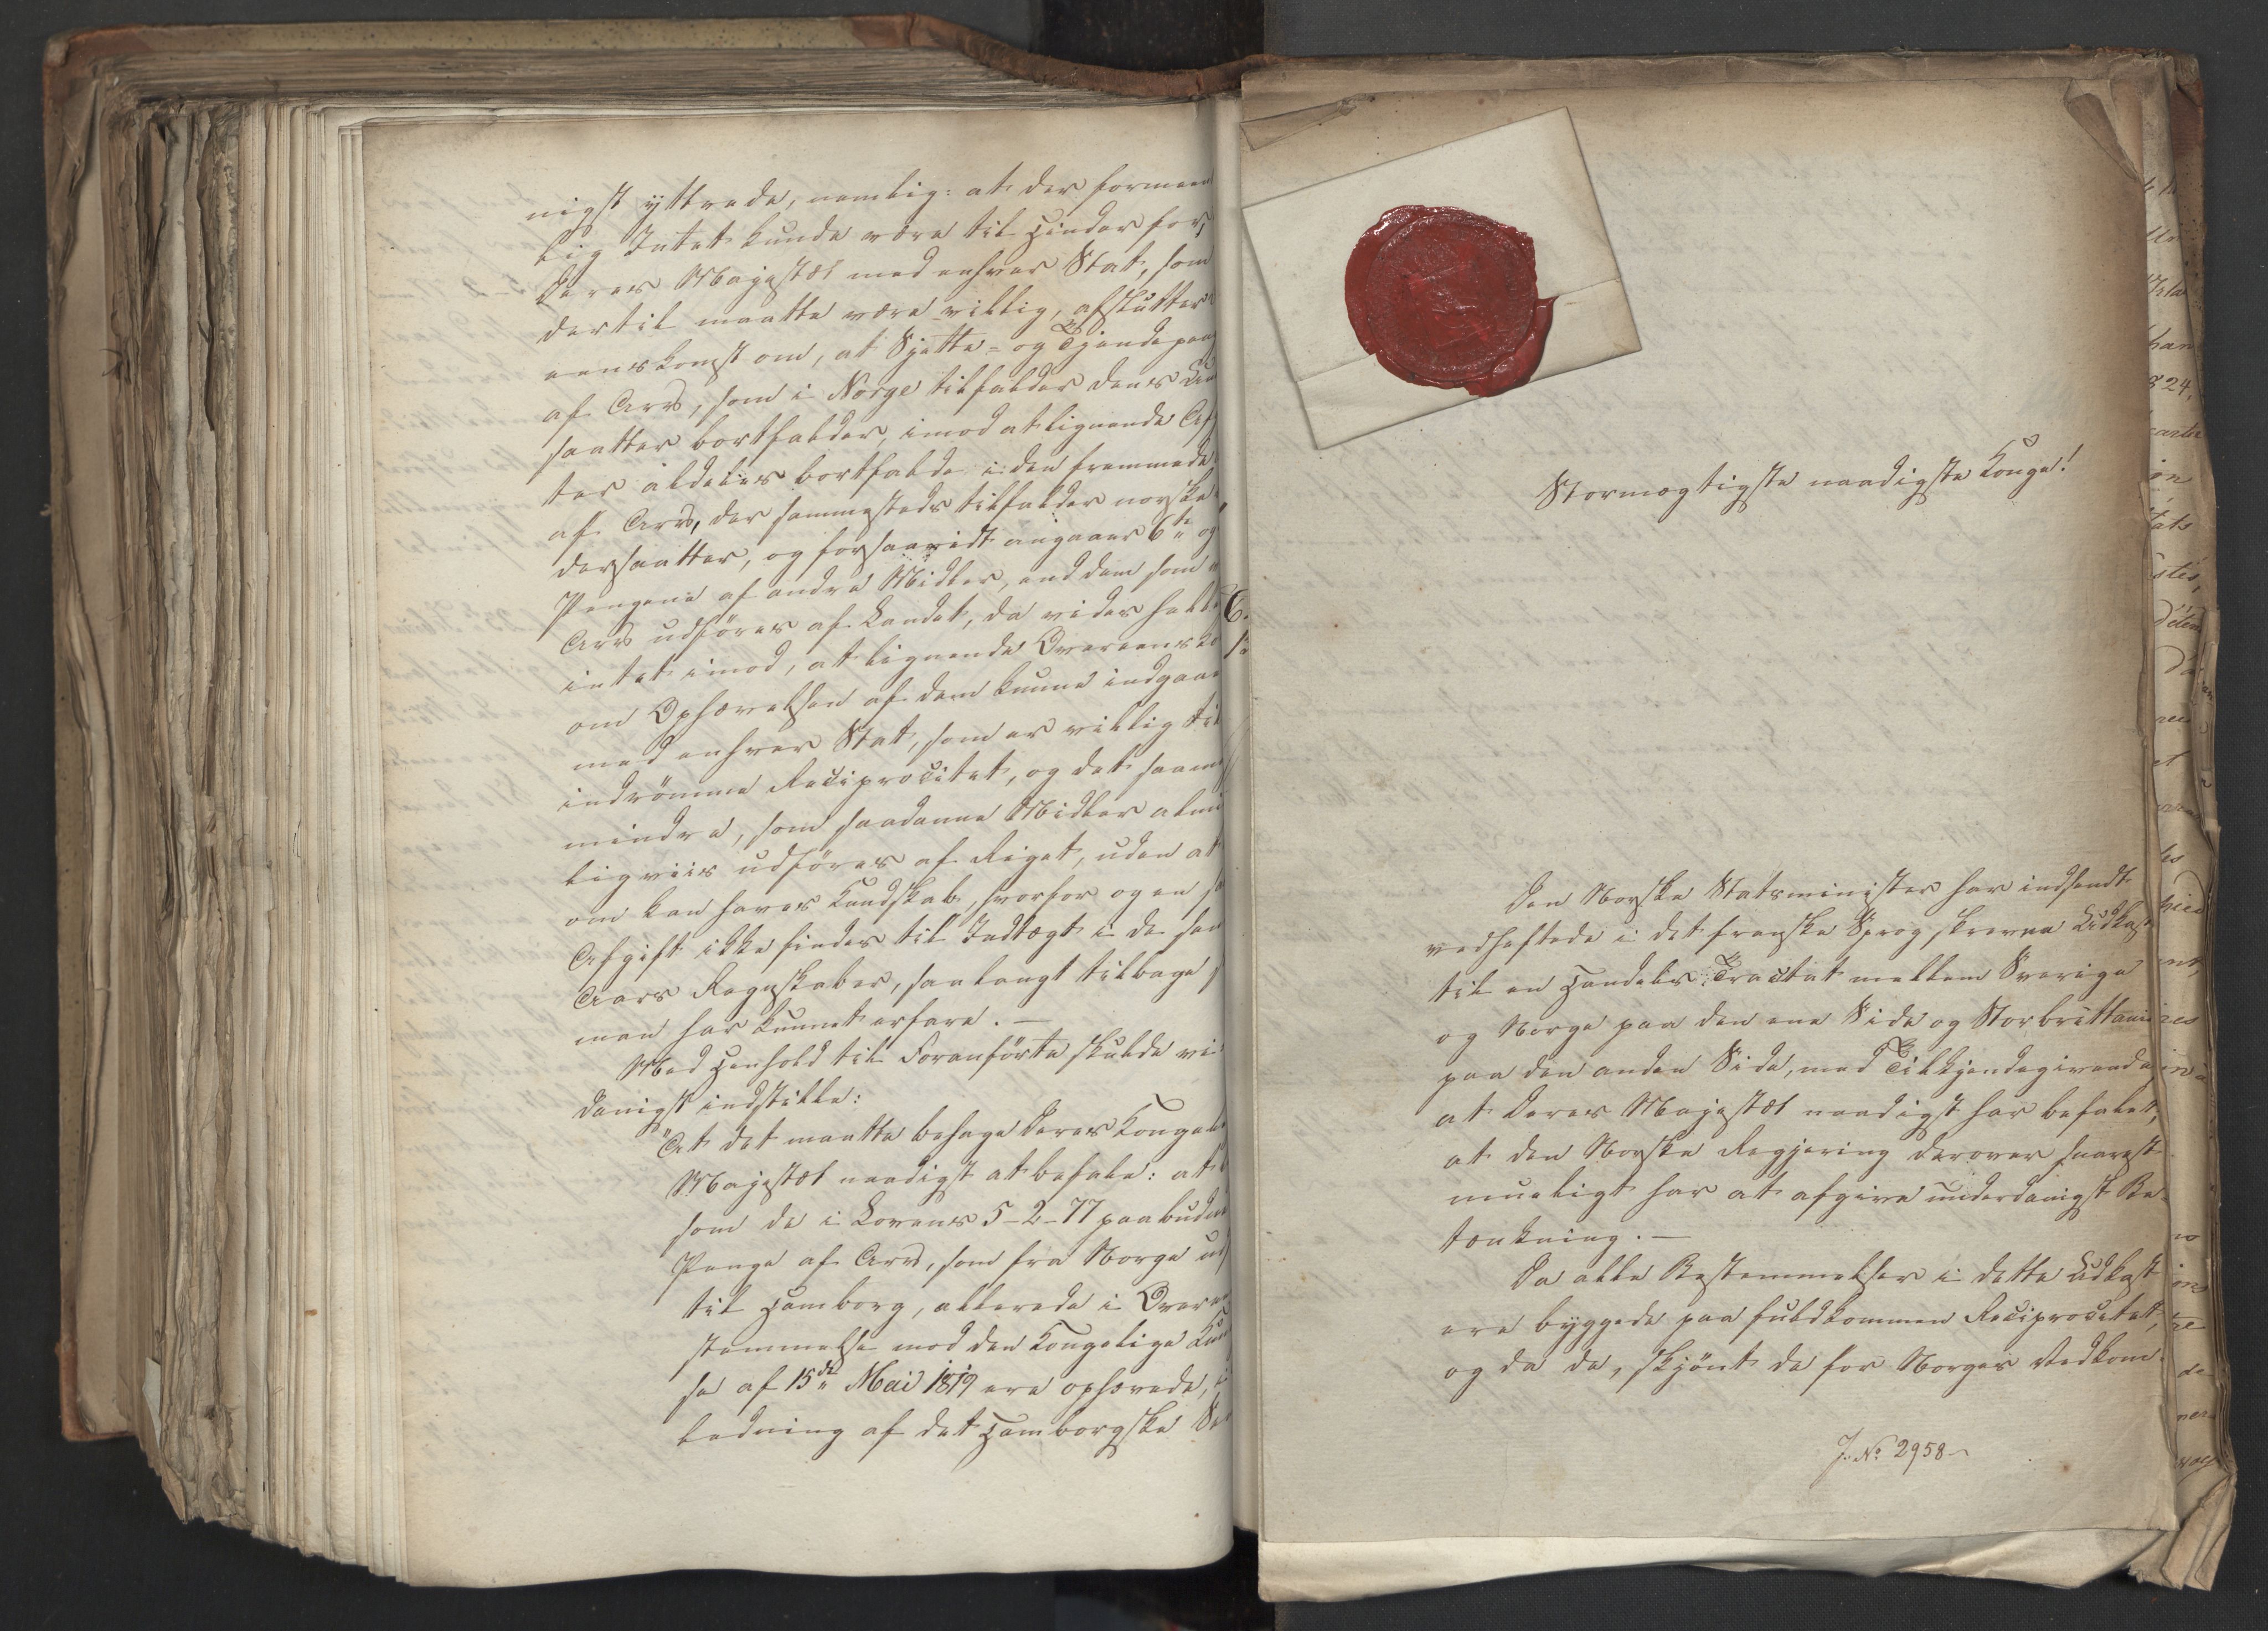 nigst yttrede, nemlig: at der formeent
lig Intet kunde være til Hinder for,
Deres Majestæt med enhver Stat, som
dertil maatte være villig, afslutter
eenskomst om, at Sjette- og Tiendepen
af Arv, som i Norge tilfalder dens Un
saatter bortfalder, imod at lignende Af
ter aldeles bortfalde i den fremmede
af Arv, der sammesteds tilfalder norske
dersaatter, og forsaavidt angaaer 6te og
Pengene af andre Midler, end dem som
Arv udføres af Landet, da vides heller
intet imod, at lignende Overeensko
om Ophævelsen af dem kunne indgaae
med enhver Stat, som er villig til
indrømme Reciprocitet, og det saame
mindre, som saadanne Midler almi
ligviis udføres af Riget, uden at
om kan haves Kundskab, hvorfor ogen
Afgift ikke findes til Indtægt i de sen
Aars Regnskaber, saalangt tilbage
man har kunnet erfare. —
Med Henhold til Foranførte skulde vi
danigst indstille:
"At det maatte behage Deres Kongel
Majestæt naadigst at befale: at
som de i Lovens 5-2-77 paabudne
Penge af Arv, som fra Norge ud
til Hamborg, allerede i Overe
stemmelse med den Kongelige Kun
se af 15de Mai 1819 ere ophævede, i
ledning af det Hamborgske Se
Stormægtigste naadigste Konge!
Den Norske Statsminister har indsendt
vedheftede i det franske Sprog skrevne Udkast
til en Handels-Tractat mellem Sverige
og Norge paa den ene Side og Storbrittani
paa den anden Side, med Tilkjendegivende
at Deres Majestæt naadigst har befalet,
at den Norske Regjering derover snarest
mueligt har at afgive underdanigst Be-
tænkning. —
Da alle Bestemmelser i dette Udkast
ere byggede paa fuldkommen Reciprocitet,
og da de, skjønt de for Norges Vedkom-
J. No 2958